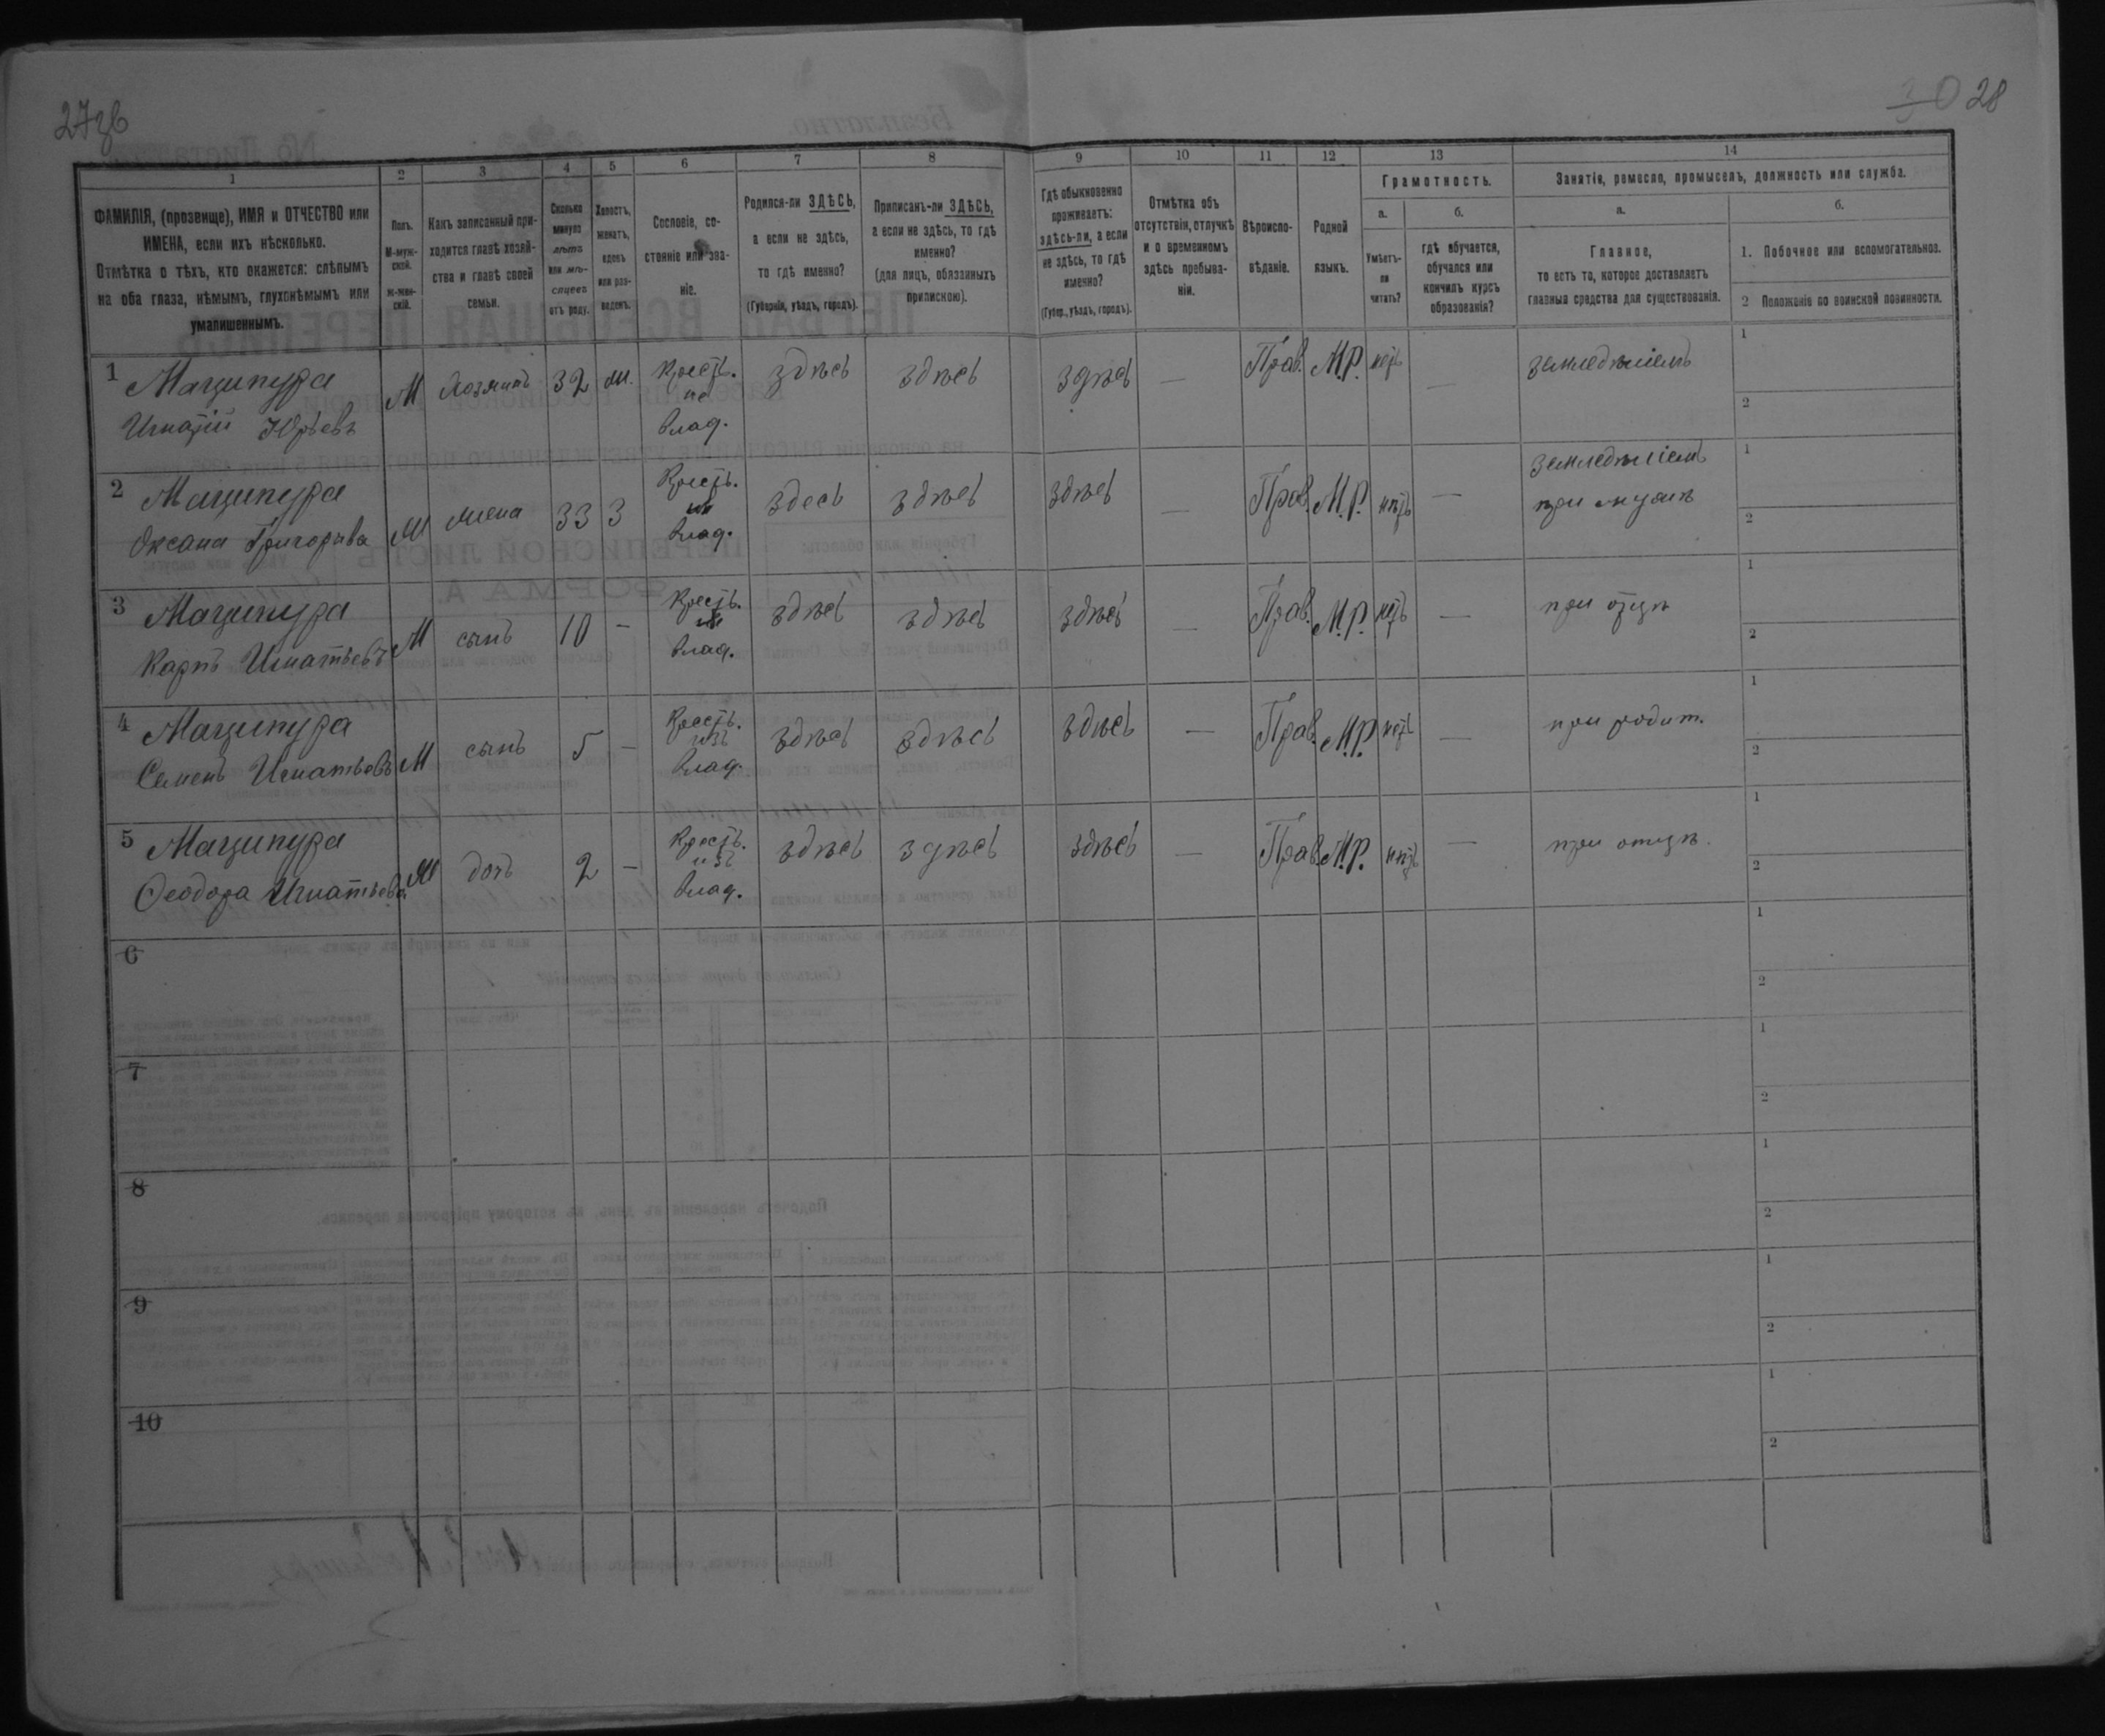 27зв
30 28
1 2 3 4 5 6 7 8 9 10 11 12 13 14
ФАМИЛІЯ, (прозвище), ИМЯ и ОТЧЕСТВО или
ИМЕНА, если ихъ нѣсколько.
Отмѣтка о тѣхъ, кто окажется: слѣпымъ
на оба глаза, нѣмымъ, глухонѣмымъ или
умалишеннымъ.
Полъ.
М-муж-
ской.
ж-жен-
скій.
Какъ записанный при-
ходится главѣ хозяй-
ства и главѣ своей
семьи.
Сколько
минуло
лѣтъ
или мѣ-
сяцевъ
отъ роду.
Холостъ,
женатъ,
вдовъ
или раз-
веденъ.
Сословіе, со-
стояніе или зва-
ніе.
Родился-ли ЗДѢСЬ,
а если не здѣсь,
то гдѣ именно?
(Губернія, уѣздъ, городъ).
Приписанъ-ли ЗДѢСЬ,
а если не здѣсь, то гдѣ
именно?
(для лицъ, обязанныхъ
припискою).
Гдѣ обыкновенно
проживаетъ:
здѣсь-ли, а если
не здѣсь, то гдѣ
именно?
(Губер., уѣздъ, городъ).
Отмѣтка объ
отсутствіи, отлучкѣ
и о временномъ
здѣсь пребыва-
ніи.
Вѣроиспо-
вѣданіе.
Родной
языкъ.
Грамотность.
а.
Умѣетъ-
ли
читать?
б.
гдѣ обучается,
обучался или
кончилъ курсъ
образованія?
Занятіе, ремесло, промыселъ, должность или служба.
а.
Главное,
то есть то, которое доставляетъ
главныя средства для существованія.
б.
1. Побочное или вспомогательное.
2 Положеніе по воинской повинности.
1 Маципура М 32 Крест. здѣсь здѣсь здѣсь — Прав. М.Р. нѣтъ — земледѣліемъ 1
Игнатій Юрьевъ влад. 2
2 Маципура жена 33 З Крест. здесь здѣсь здѣсь — Прав. М.Р. нѣтъ — земледѣліемъ 1
Оксана Григорьева влад. при мужѣ 2
3 Маципура М сынъ 10 — Крест. здѣсь здѣсь здѣсь — Прав. М.Р. нѣтъ — при отцѣ 1
Карпъ Игнатьевъ влад. 2
4 Маципура М сынъ 5 — Крест. здѣсь здѣсь здѣсь — Прав. М.Р. нѣтъ — при родит. 1
Семенъ Игнатьевъ изъ влад. 2
5 Маципура дочь 2 — Крест. здѣсь здѣсь здѣсь — Прав. М.Р. нѣтъ — при отцѣ. 1
Ѳеодора Игнатьева изъ влад. 2
6 1
2
7 1
2
8 1
2
9 1
2
10 1
2